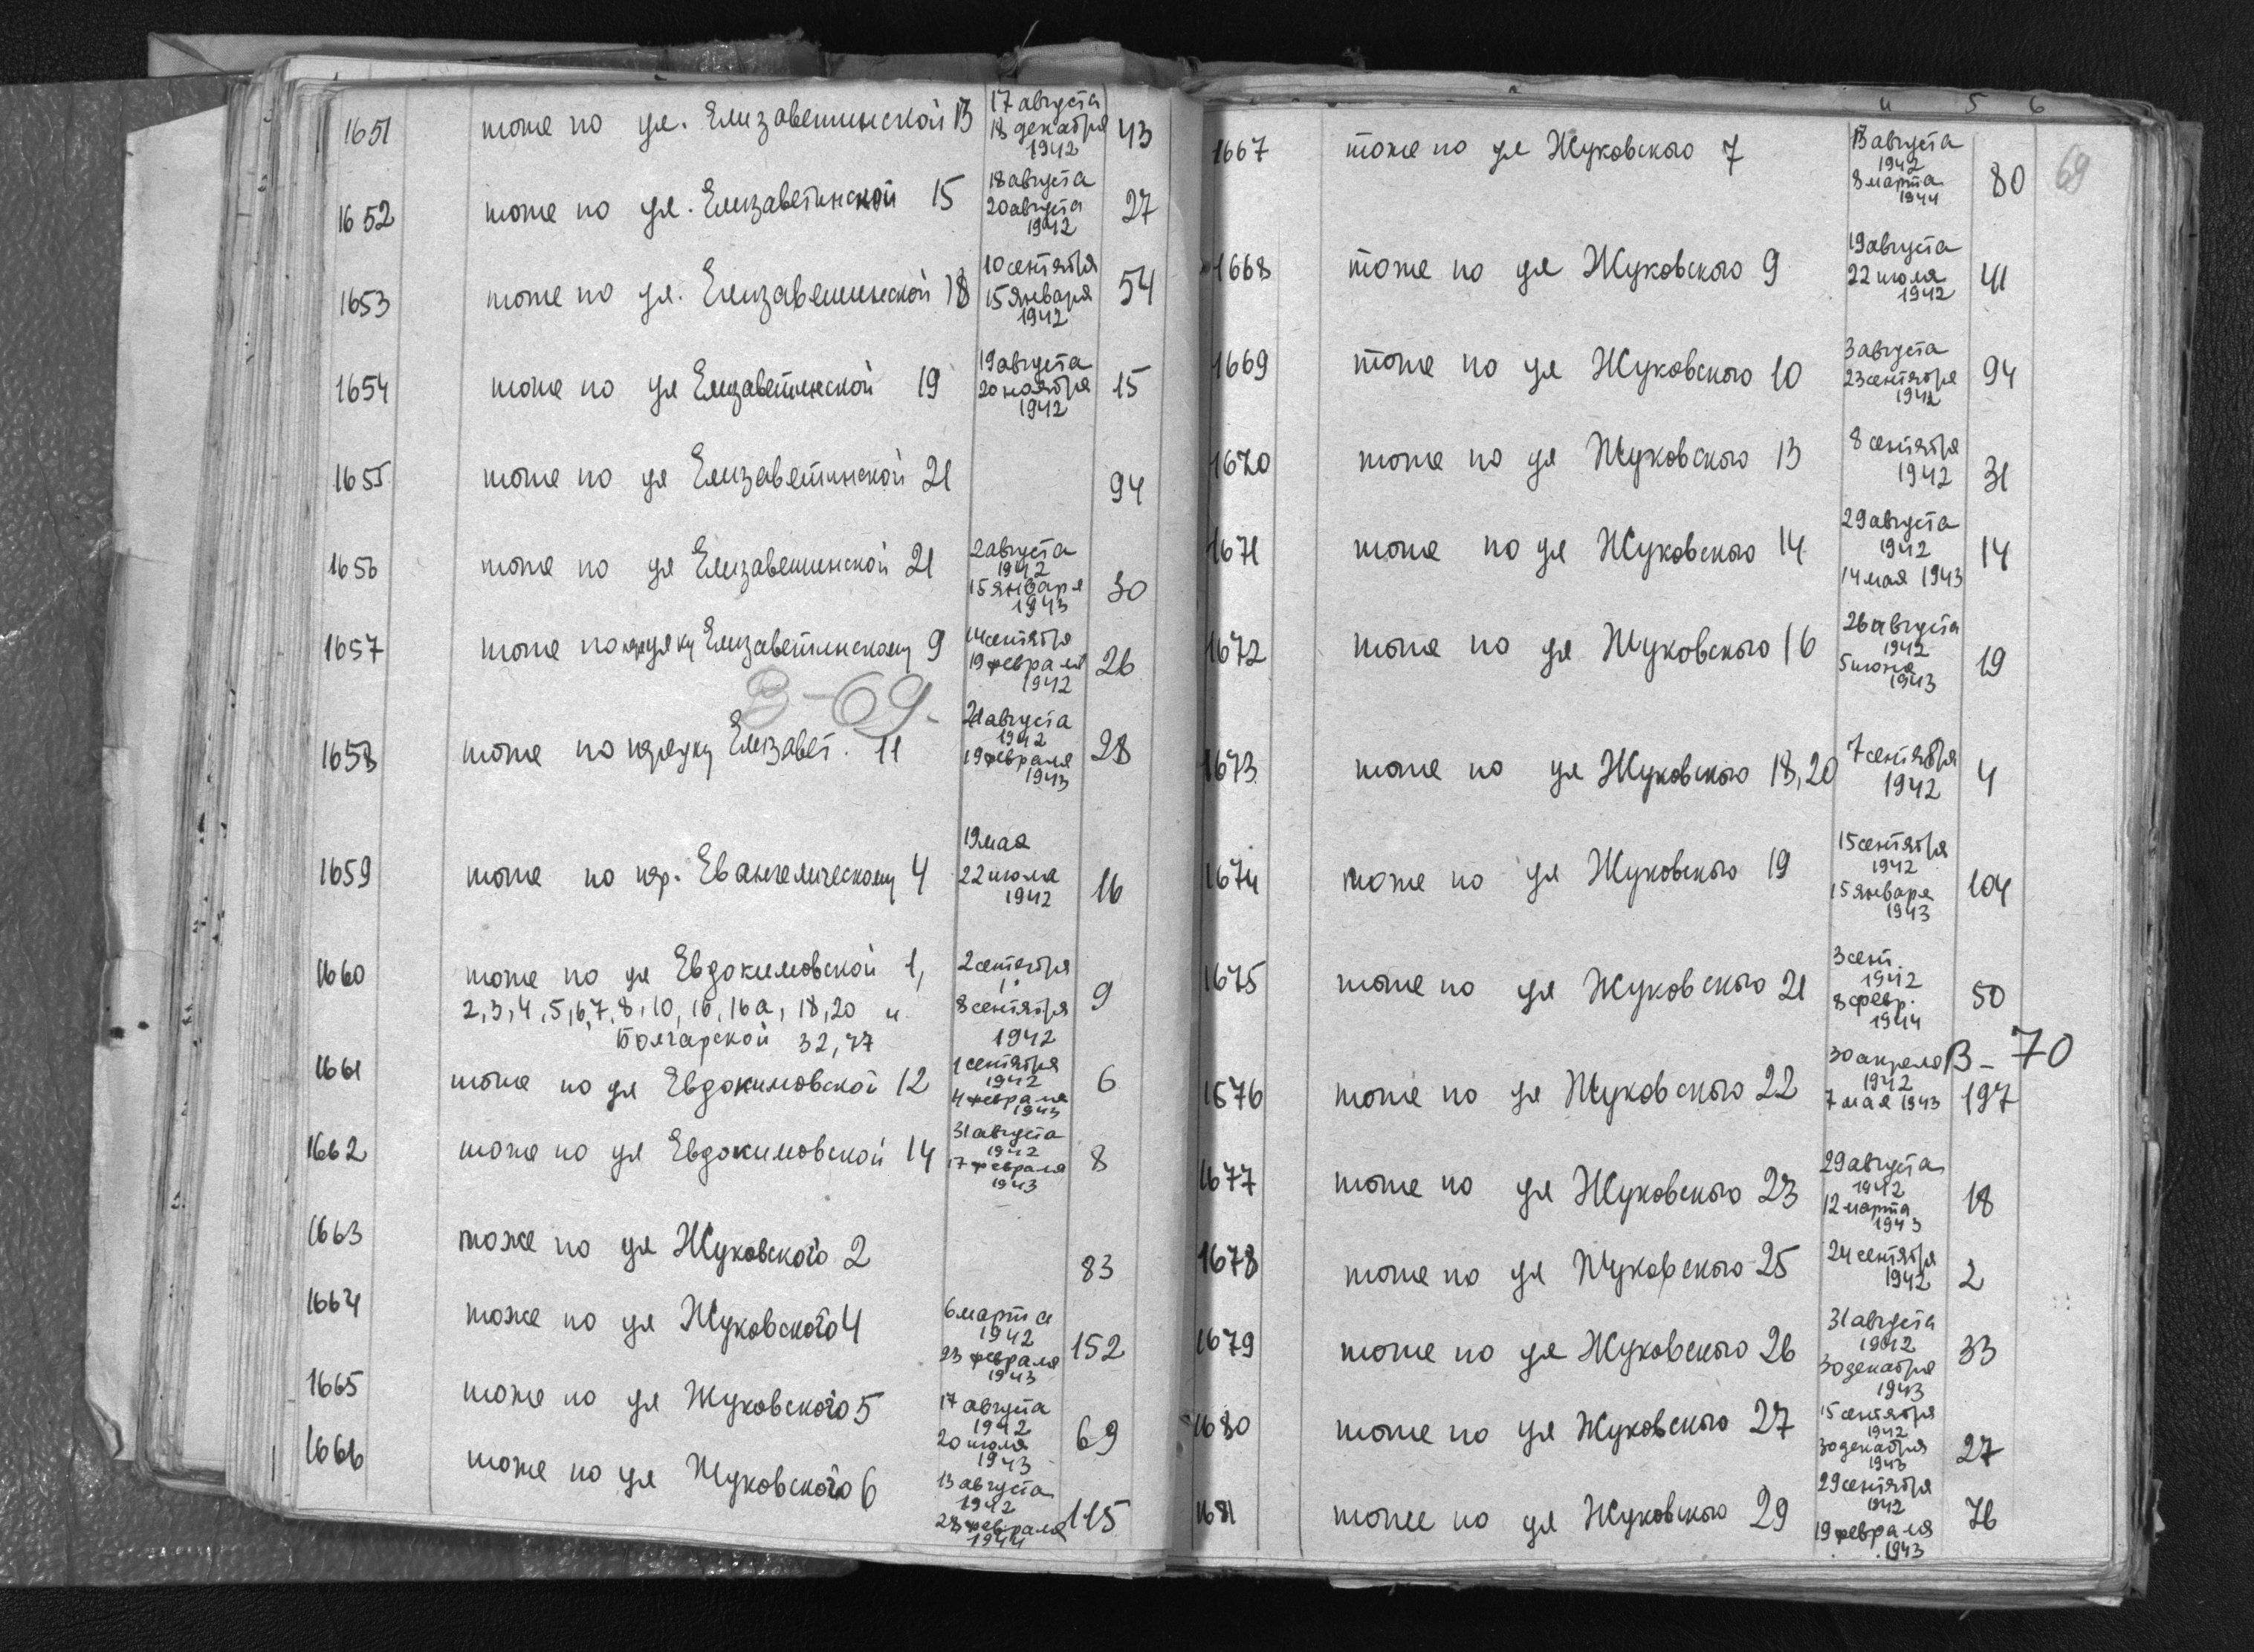 1651 тоже по ул. Елизаветинской 13 17 августа 43
18 декабря
1942
1652 тоже по ул. Елизаветинской 15 18 августа 27
20 августа
1942
1653 тоже по ул. Елизаветинской 18 10 сентября 54
15 января
1942
1654 тоже по ул Елизаветинской 19 19 августа 15
20 ноября
1942
1655 тоже по ул Елизаветинской 21 94
1656 тоже по ул Елизаветинской 21 2 августа 30
1942
15 января
1943
1657 тоже по Елизаветинскому 9 14 сентября 26
19 февраля
1942
В-69.
1658 тоже по Елизавет. 11 21 августа 28
1942
19 февраля
1943
1659 тоже по пер. Евангелическому 4 19 мая 16
22 июля
1942
1660 тоже по ул Евдокимовской 1, 2 сентября 9
2,3,4,5,6,7,8,10,16,16а,18,20 и 8 сентября
Болгарской 32,77 1942
1661 тоже по ул Евдокимовской 12 1 сентября 6
1942
4 февраля
1943
1662 тоже по ул Евдокимовской 14 31 августа 8
1942
17 февраля
1943
1663 тоже по ул Жуковского 2 83
1664 тоже по ул Жуковского 4 6 марта 152
1942
23 февраля
1943
1665 тоже по ул Жуковского 5 17 августа 69
1942
20 июля
1943
1666 тоже по ул Жуковского 6 13 августа 115
1942
28 февраля
1944
4 5 6
69
1667 тоже по ул Жуковского 7 13 августа 80
1942
8 марта
1944
1668 тоже по ул Жуковского 9 19 августа 41
22 июля
1942
1669 тоже по ул Жуковского 10 3 августа 94
23 сентября
1942
1670 тоже по ул Жуковского 13 8 сентября 31
1942
1671 тоже по ул Жуковского 14 29 августа 14
1942
14 мая 1943
1672 тоже по ул Жуковского 16 26 августа 19
1942
5 июня
1943
1673 тоже по ул Жуковского 18,20 7 сентября 4
1942
1674 тоже по ул Жуковского 19 15 сентября 104
1942
15 января
1943
1675 тоже по ул Жуковского 21 3 сент. 50
1942
8 февр.
1944
В-70
1676 тоже по ул Жуковского 22 30 апреля 197
1942
7 мая 1943
1677 тоже по ул Жуковского 23 29 августа 18
1942
12 марта
1943
1678 тоже по ул Жуковского 25 24 сентября 2
1942
1679 тоже по ул Жуковского 26 31 августа 33
1942
30 декабря
1943
1680 тоже по ул Жуковского 27 15 сентября 27
1942
30 декабря
1943
1681 тоже по ул Жуковского 29 29 сентября 76
1942
19 февраля
1943